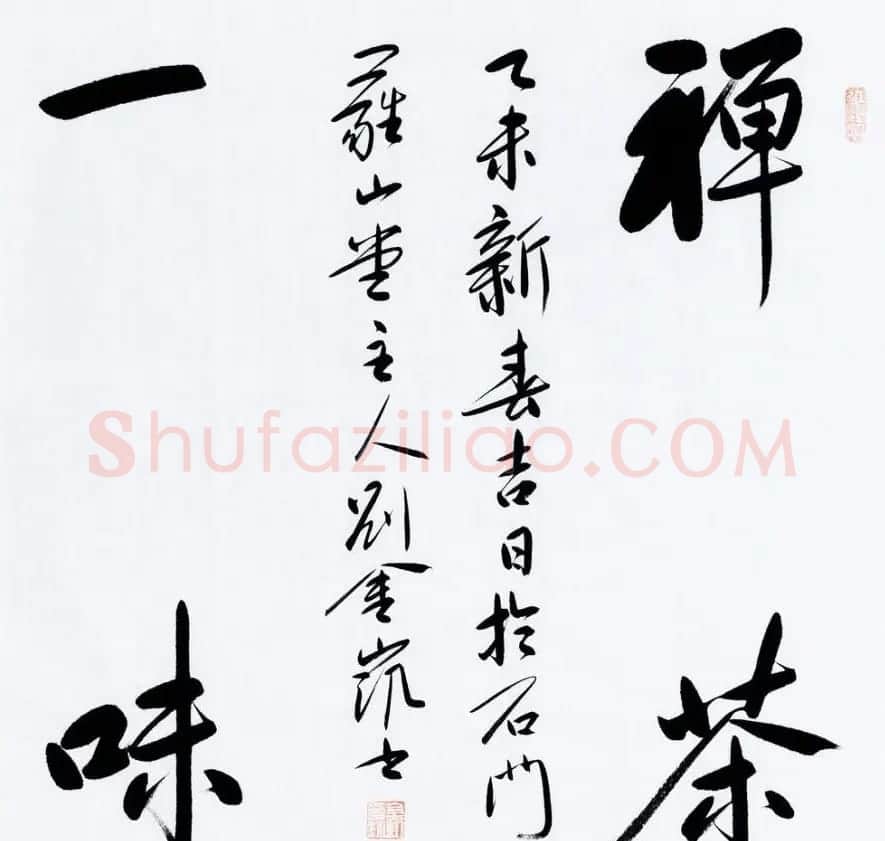 禪茶
乙未新春吉日於石門
羅山堂主人劉金凱書
一味
Shufaziliao.COM